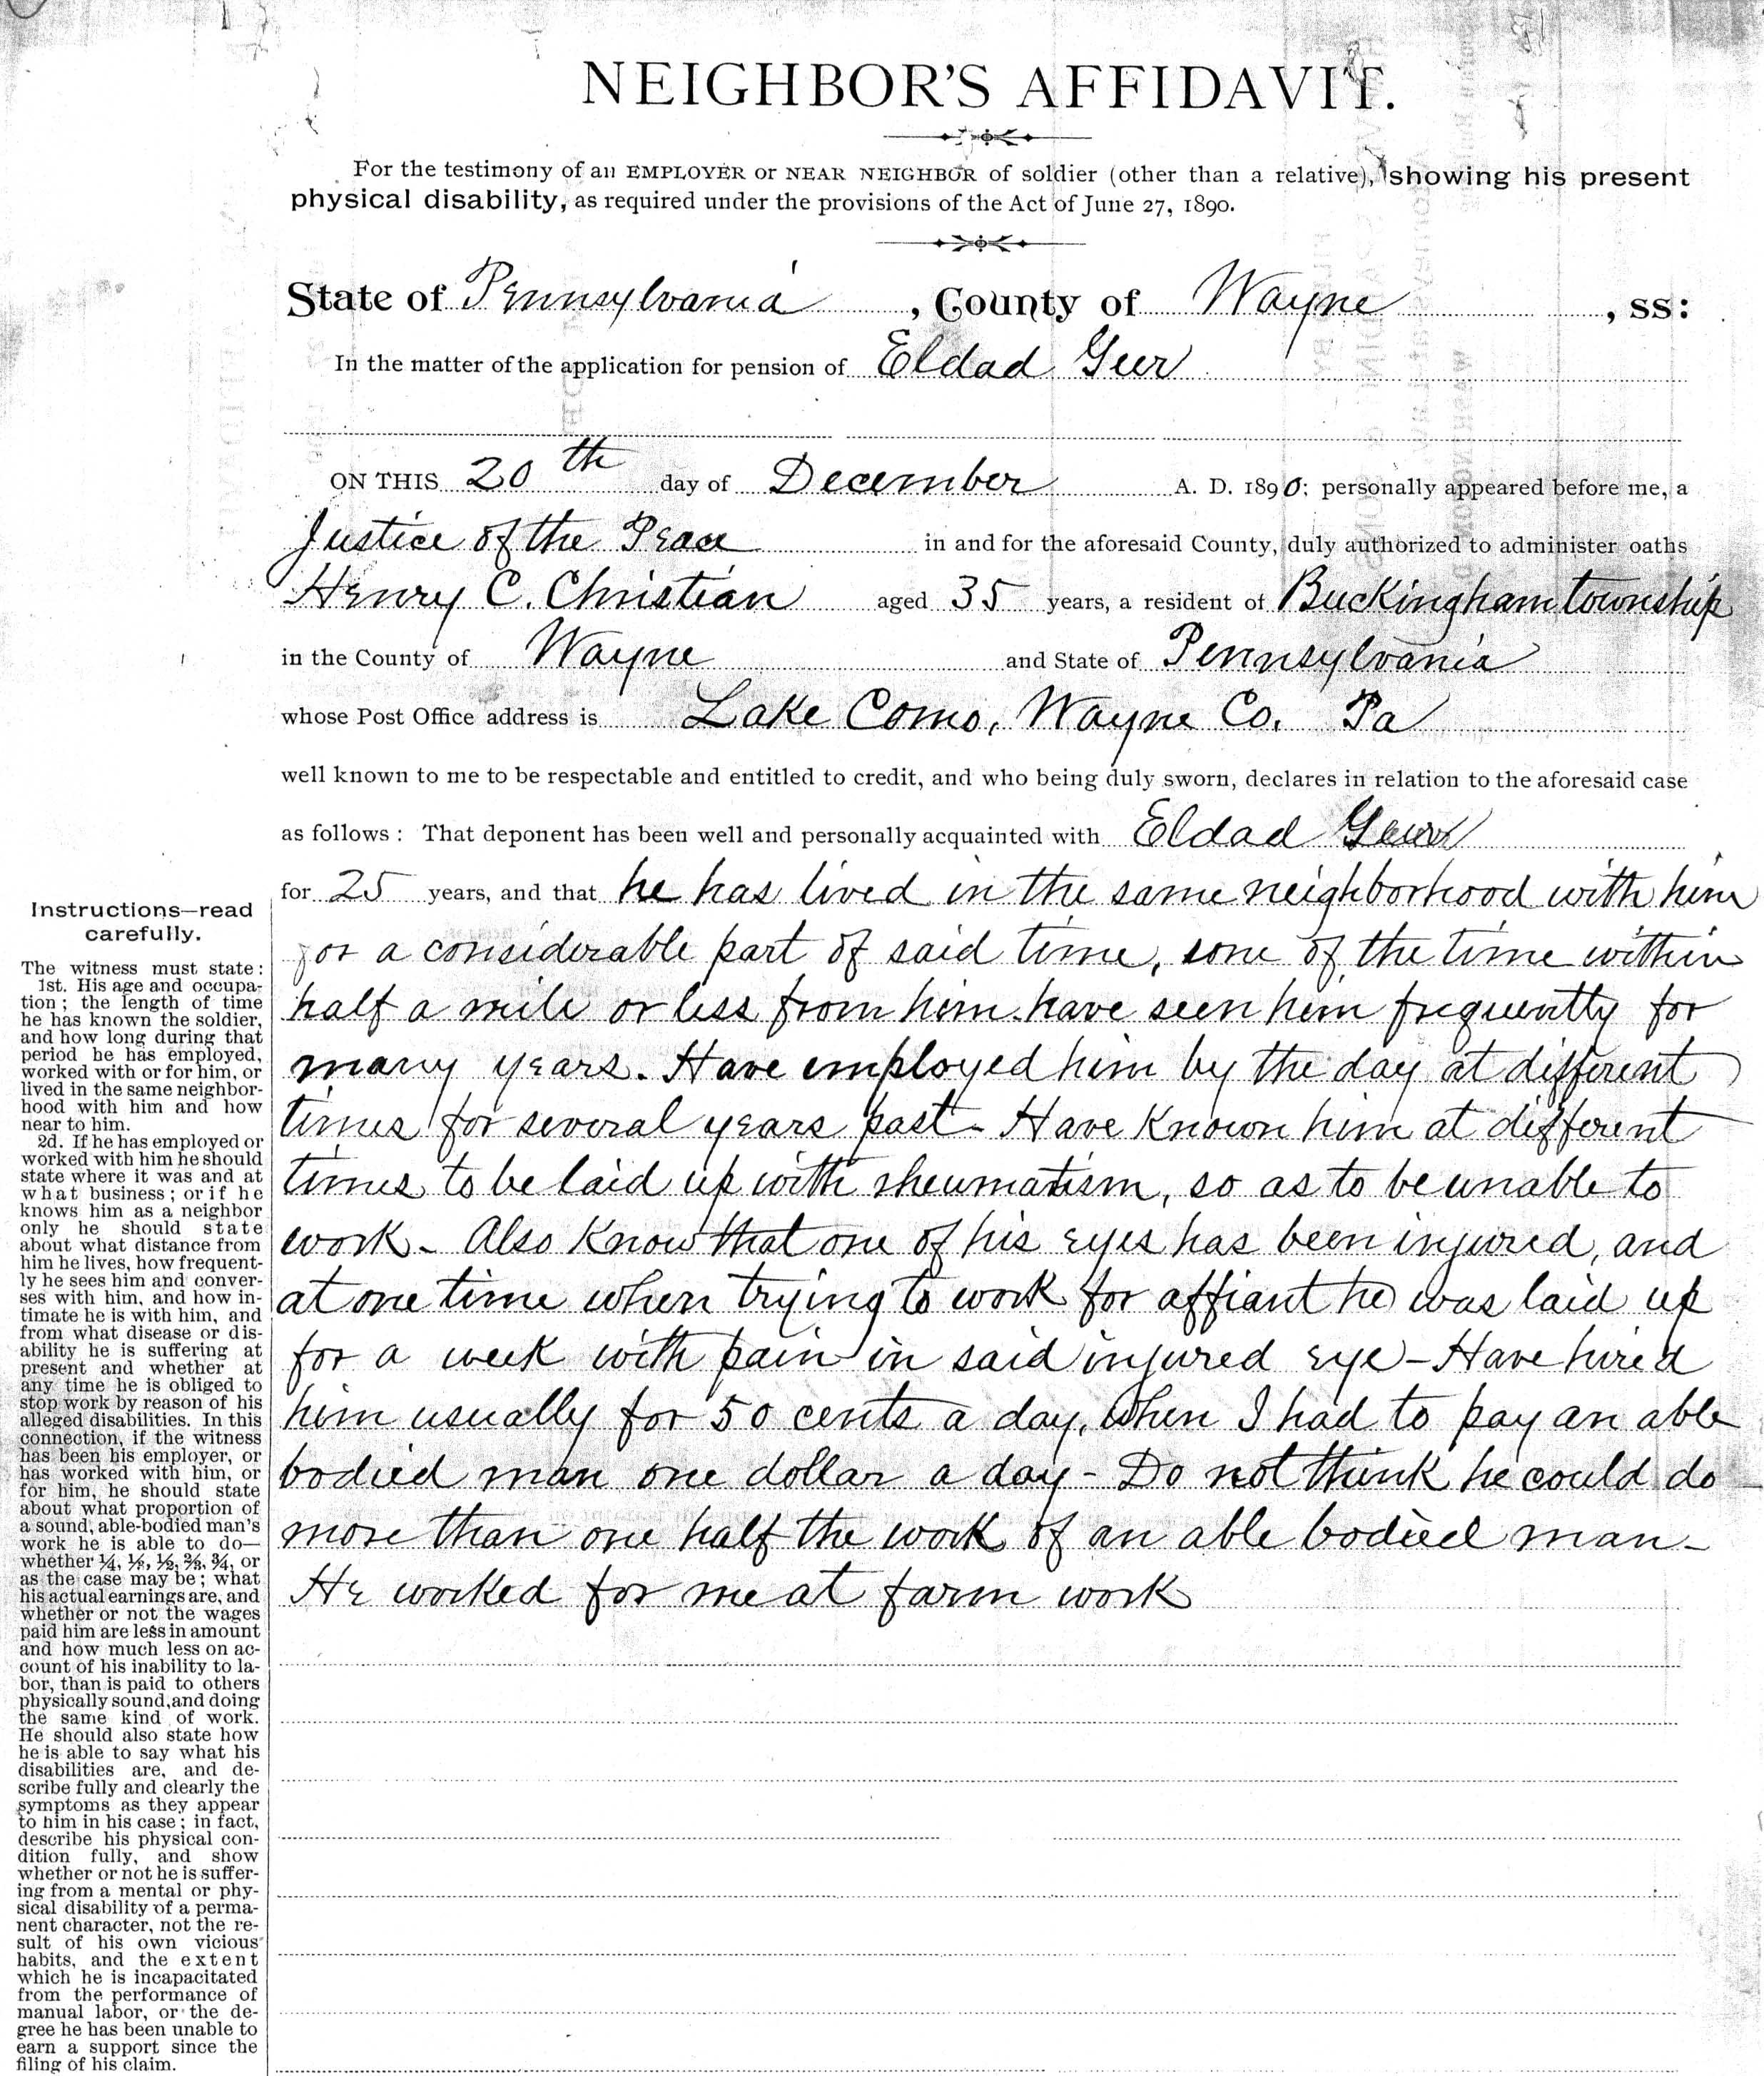 NEIGHBOR'S AFFIDAVIT.
For the testimony of an EMPLOYER or NEAR NEIGHBOR of soldier (other than a relative), showing his present
physical disability, as required under the provisions of the Act of June 27, 1890.
State of Pennsylvania, County of Wayne, ss:
In the matter of the application for pension of Eldad Geer
ON THIS 20th day of December A. D. 1890; personally appeared before me, a
Justice of the Peace in and for the aforesaid County, duly authorized to administer oaths
Henry C. Christian aged 35 years, a resident of Buckingham township
in the County of Wayne and State of Pennsylvania
whose Post Office address is Lake Como, Wayne Co. Pa
well known to me to be respectable and entitled to credit, and who being duly sworn, declares in relation to the aforesaid case
as follows: That deponent has been well and personally acquainted with Eldad Geer
for 25 years, and that he has lived in the same neighborhood with him
for a considerable part of said time, some of the time within
half a mile or less from him. have seen him frequently for
many years. Have employed him by the day at different
times for several years past - Have Known him at different
times to be laid up with rheumatism, so as to be unable to
work - Also Know that one of his eyes has been injured, and
at one time when trying to work for affiant he was laid up
for a week with pain in said injured eye - Have hired
him usually for 50 cents a day, When I had to pay an able
bodied man one dollar a day - Do not think he could do
more than one half the work of an able bodied man -
He worked for me at farm work
Instructions—read
carefully.
The witness must state:
1st. His age and occupa-
tion; the length of time
he has known the soldier,
and how long during that
period he has employed,
worked with or for him, or
lived in the same neighbor-
hood with him and how
near to him.
2d. If he has employed or
worked with him he should
state where it was and at
what business; or if he
knows him as a neighbor
only he should state
about what distance from
him he lives, how frequent-
ly he sees him and conver-
ses with him, and how in-
timate he is with him, and
from what disease or dis-
ability he is suffering at
present and whether at
any time he is obliged to
stop work by reason of his
alleged disabilities. In this
connection, if the witness
has been his employer, or
has worked with him, or
for him, he should state
about what proportion of
a sound, able-bodied man's
work he is able to do—
whether ¼, ⅓, ½, ⅔, ¾, or
as the case may be; what
his actual earnings are, and
whether or not the wages
paid him are less in amount
and how much less on ac-
count of his inability to la-
bor, than is paid to others
physically sound, and doing
the same kind of work.
He should also state how
he is able to say what his
disabilities are, and de-
scribe fully and clearly the
symptoms as they appear
to him in his case; in fact,
describe his physical con-
dition fully, and show
whether or not he is suffer-
ing from a mental or phy-
sical disability of a perma-
nent character, not the re-
sult of his own vicious
habits, and the extent
which he is incapacitated
from the performance of
manual labor, or the de-
gree he has been unable to
earn a support since the
filing of his claim.